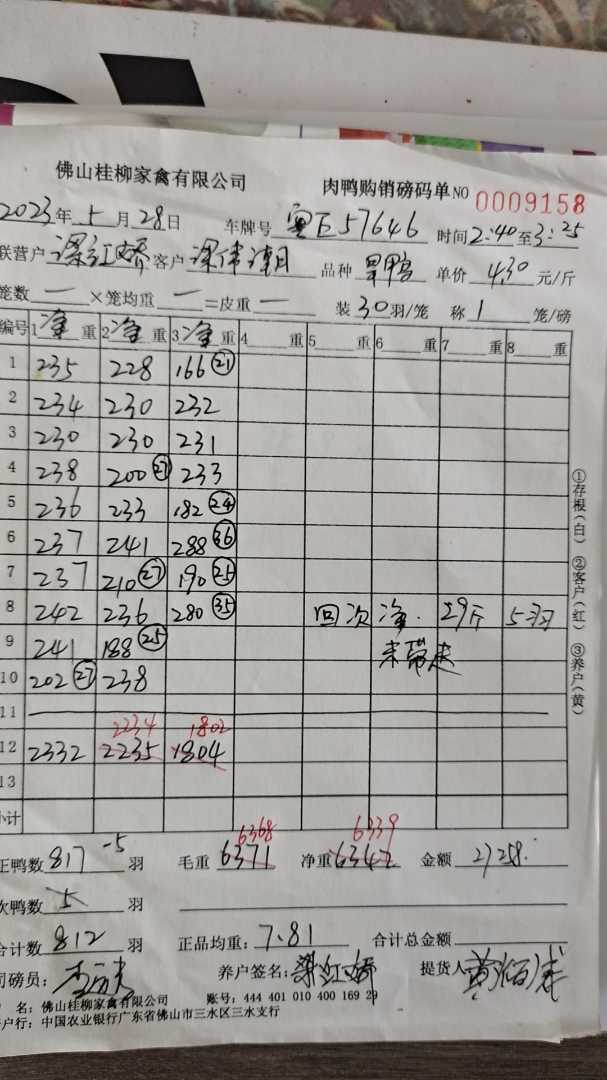 佛山桂柳家禽有限公司 肉鸭购销磅码单 NO 0009158
2023年 5月 28日 车牌号 粤E57646 时间 2:40 至 3:25
联营户 梁红娇 客户 品种 旱鸭 单价 4.30 元/斤
笼数 一 ×笼均重 一 =皮重 一 装 30 羽/笼 称 1 笼/磅
编号 1 净 重 2 净 重 3 净 重 4 重 5 重 6 重 7 重 8 重
1 235 228 166 (21)
2 234 230 232
3 230 230 231
4 238 200 (27) 233
5 236 233 182 (24)
6 237 241 288 (36)
7 237 210 (27) 190 (25)
8 242 236 280 (35) 回次净. 29斤 5羽
9 241 188 (25) 未带走
10 202 (27) 238
11
2234 1802
12 2332 2235 1804
13
小计
6368 6339
正鸭数 817 -5 羽 毛重 6371 净重 6342 金额 27258.
次鸭数 5 羽
合计数 812 羽 正品均重: 7.81 合计总金额
司磅员: 养户签名: 梁红娇 提货人
名: 佛山桂柳家禽有限公司 账号: 444 401 010 400 169 29
户行: 中国农业银行广东省佛山市三水区三水支行
①存根(白) ②客户(红) ③养户(黄)